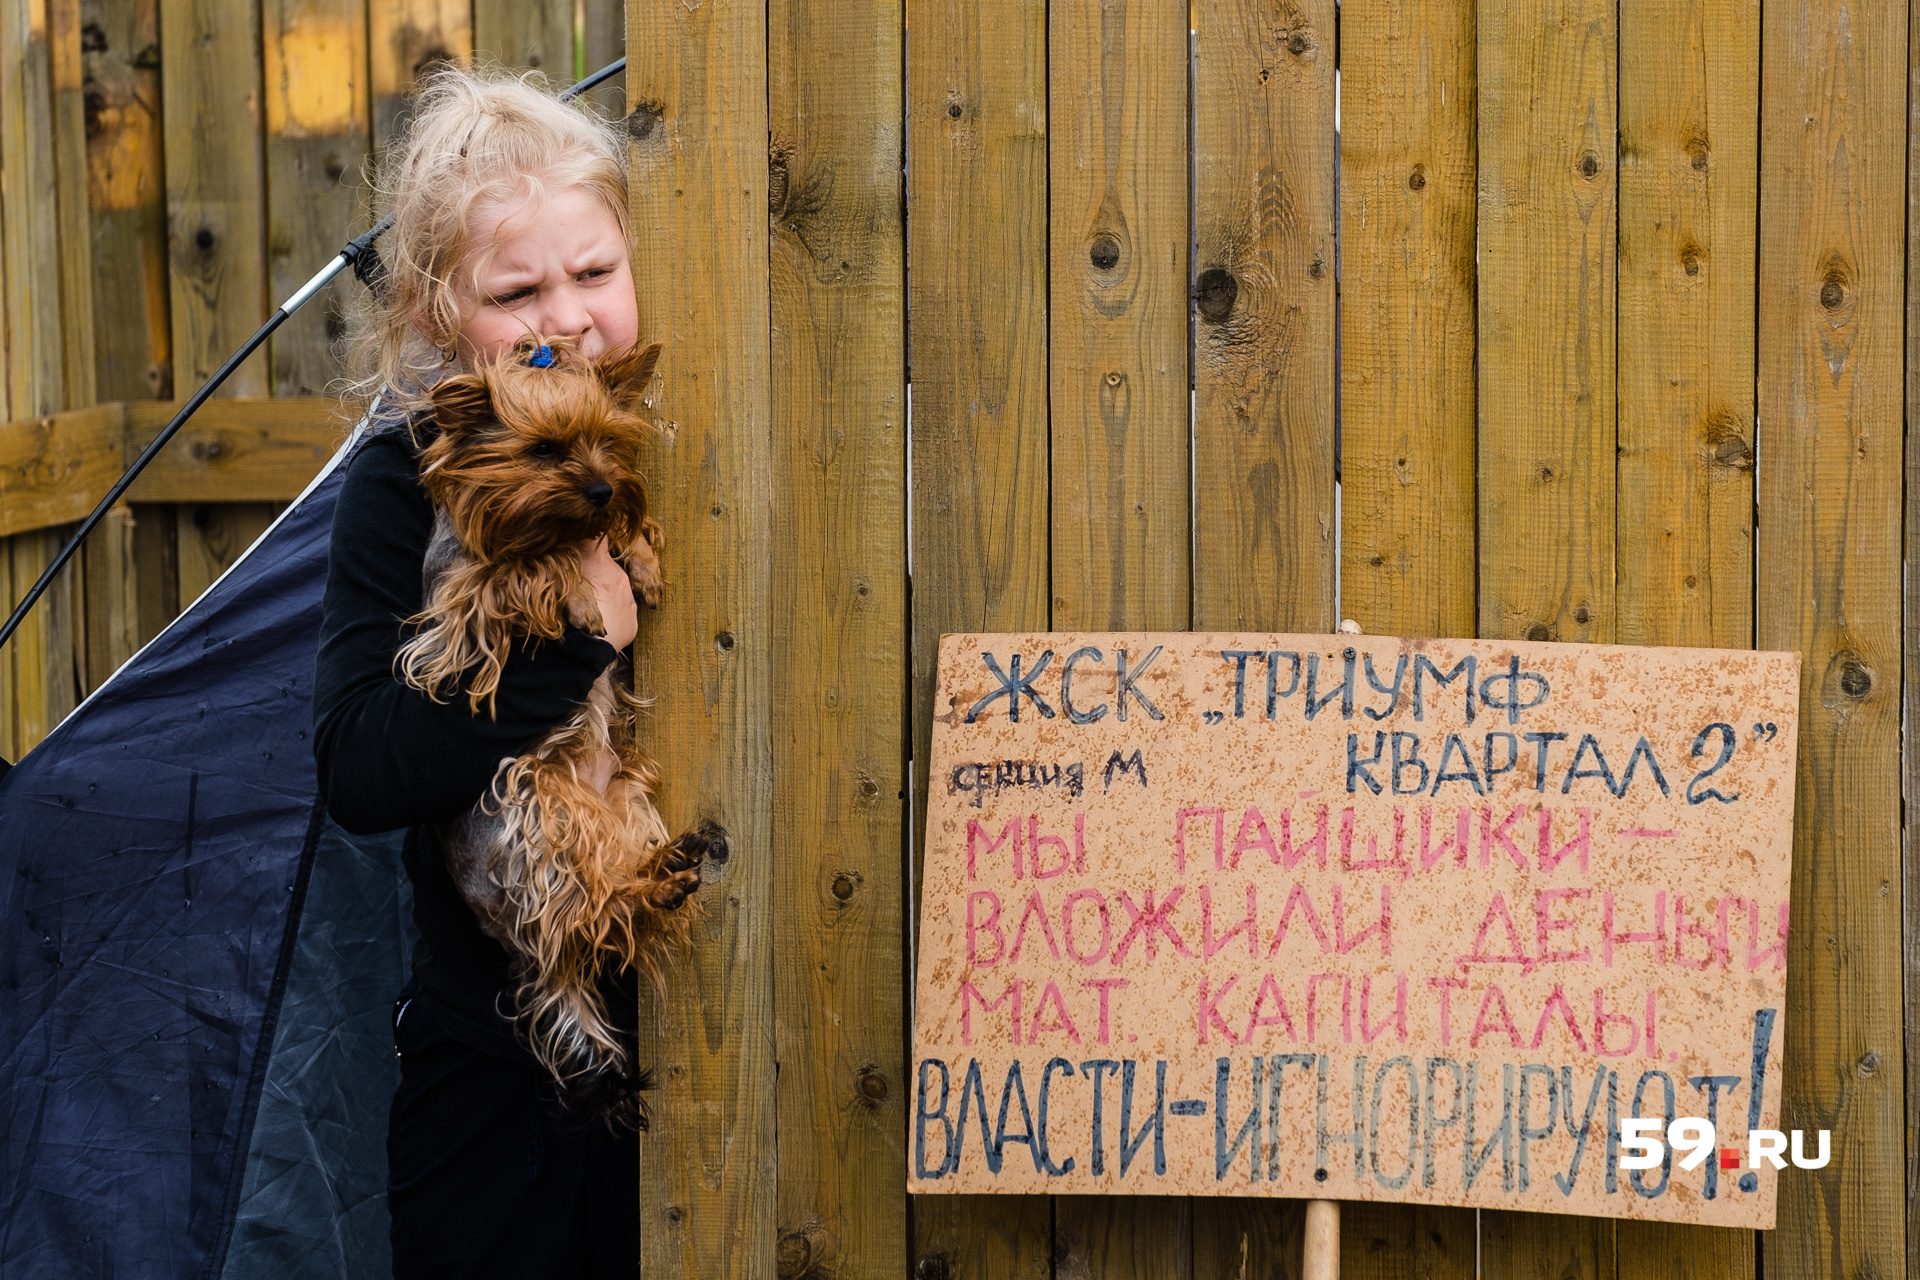 ЖСК „ТРИУМФ
КВАРТАЛ 2”
секция М
МЫ ПАЙЩИКИ —
ВЛОЖИЛИ ДЕНЬГИ
МАТ. КАПИТАЛЫ.
ВЛАСТИ-ИГНОРИРУЮТ!
59.RU